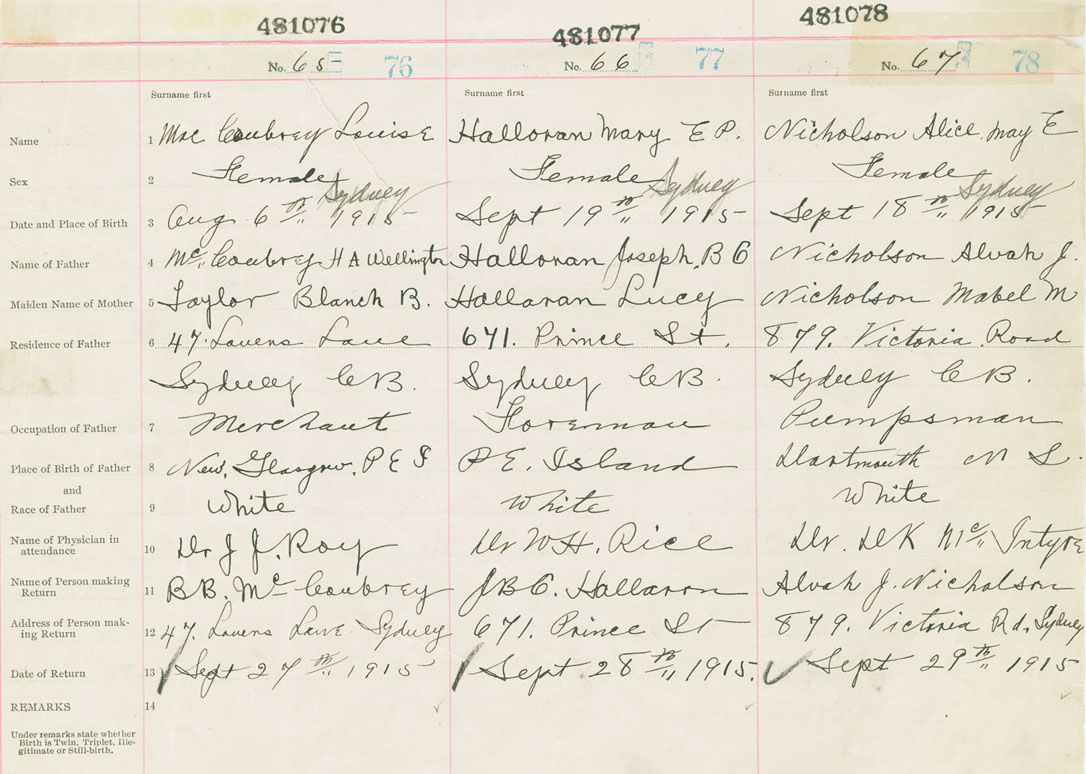 481076 481077 481078
No. 65 76 No. 66 77 No. 67 78
Surname first Surname first Surname first
Name 1 Mac Coubrey Louise Halloran Mary E P. Nicholson Alice May E
Sex 2 Female Female Female
Sydney Sydney Sydney
Date and Place of Birth 3 Aug 6th 1915 Sept 19th 1915 Sept 18th 1915
Name of Father 4 Mc Coubrey H A Wellington Halloran Joseph. B C Nicholson Alvah J.
Maiden Name of Mother 5 Taylor Blanch B. Halloran Lucy Nicholson Mabel M
Residence of Father 6 47. Lovers Lane 671. Prince St. 879. Victoria Road
Sydney C B. Sydney C B. Sydney C B.
Occupation of Father 7 Merchant Foreman Pumpsman
Place of Birth of Father 8 New, Glasgow. P E I P E. Island Dartmouth N S.
and
Race of Father 9 White White White
Name of Physician in
attendance 10 Dr J J. Roy Dr W H. Rice Dr. D K Mc Intyre
Name of Person making
Return 11 B B. Mc Coubrey J B C. Halloran Alvah J. Nicholson
Address of Person mak-
ing Return 12 47. Lovers Lane Sydney 671. Prince St 879. Victoria Rd, Sydney
Date of Return 13 Sept 27th 1915 Sept 28th 1915. Sept 29th 1915
REMARKS 14
Under remarks state whether
Birth is Twin, Triplet, Ille-
gitimate or Still-birth.